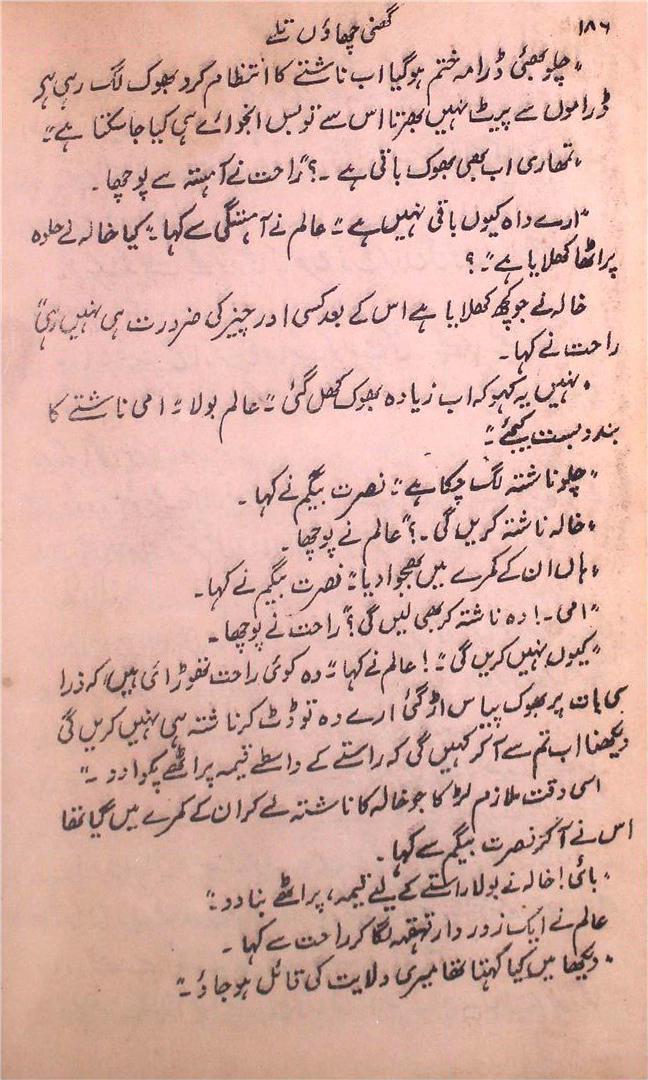 ۱۸۶
گھنی چھاؤں تلے
"چلو بھئی ڈرامہ ختم ہوگیا اب ناشتے کا انتظام کرو بھوک لگ رہی ہے
ڈراموں سے پیٹ نہیں بھرتا اس سے تو بس انجوائے ہی کیا جاسکتا ہے۔"
"تمھاری اب بھی بھوک باقی ہے ۔؟" راحت نے آہستہ سے پوچھا ۔
"ارے واہ کیوں باقی نہیں ہے ۔" عالم نے آہستگی سے کہا ۔" کیا خالہ نے حلوہ
پراٹھا کھلایا ہے ۔" ؟
خالہ نے جو کچھ کھلایا ہے اس کے بعد کسی اور چیز کی ضرورت ہی نہیں رہی"
راحت نے کہا۔
"نہیں یہ کہو کہ اب زیادہ بھوک کھل گئی ۔" عالم بولا ۔" امی ناشتے کا
بندوبست کیجئے ۔"
"چلو ناشتہ لگ چکا ہے ۔" نصرت بیگم نے کہا ۔
"خالہ ناشتہ کریں گی ۔؟" عالم نے پوچھا ۔
"ہاں ان کے کمرے میں بھجوا دیا ۔" نصرت بیگم نے کہا ۔
"امی ۔! وہ ناشتہ کر بھی لیں گی ؟" راحت نے پوچھا ۔
"کیوں نہیں کریں گی ۔" ! عالم نے کہا ۔" وہ کوئی راحت تھوڑائی ہیں، کہ ذرا
سی بات پر بھوک پیاس اڑ گئی ارے وہ تو ڈٹ کر ناشتہ ہی نہیں کریں گی
دیکھنا اب تم سے آکر کہیں گی کہ راستے کے واسطے قیمہ پراٹھے پکوا دو ۔"
اسی وقت ملازم لڑکا جو خالہ کا ناشتہ لے کر ان کے کمرے میں گیا تھا
اس نے آکر نصرت بیگم سے کہا ۔
"بائی! خالہ نے بولا راستے کے لیے قیمہ، پراٹھے بنا دو ۔"
عالم نے ایک زور دار قہقہہ لگا کر راحت سے کہا ۔
"دیکھا میں کیا کہتا تھا میری ولایت کی قائل ہو جاؤ ۔"